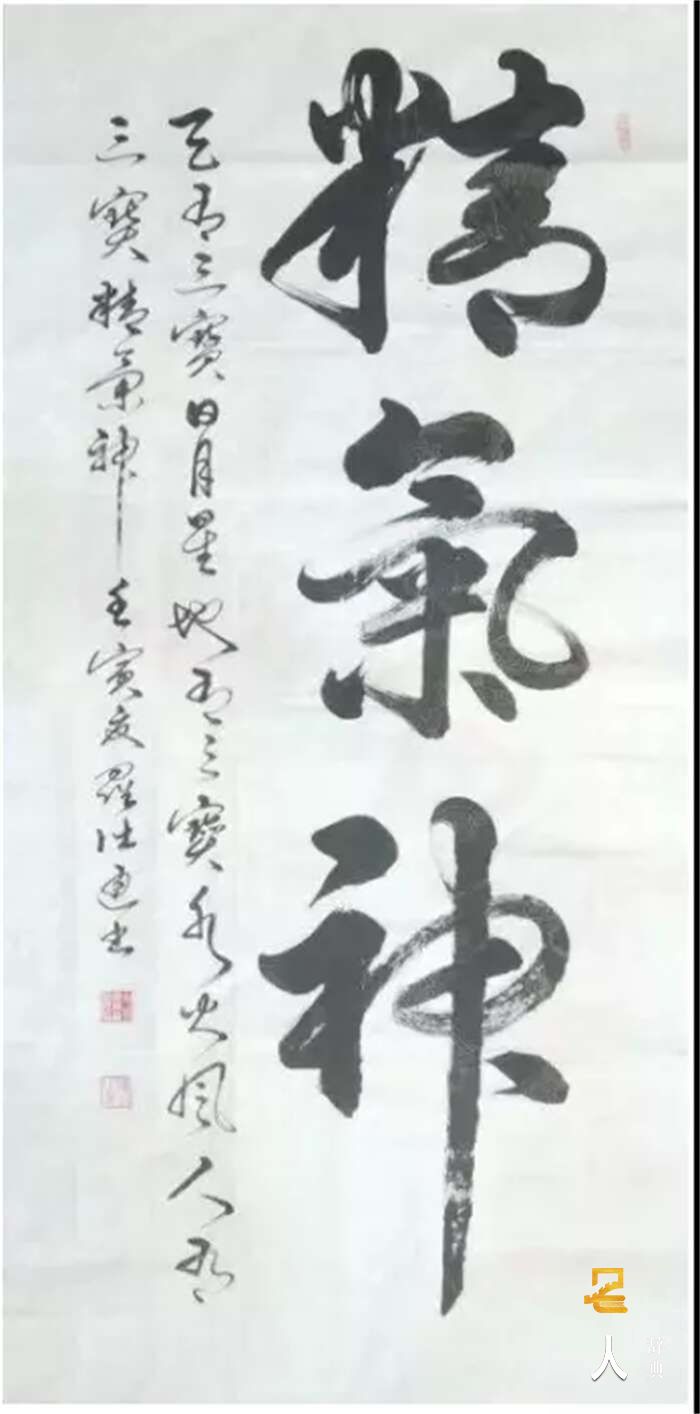 精氣神
天有三寶日月星地有三寶水火風人有
三寶精氣神壬寅夏羅仕通書
名
人
辞典